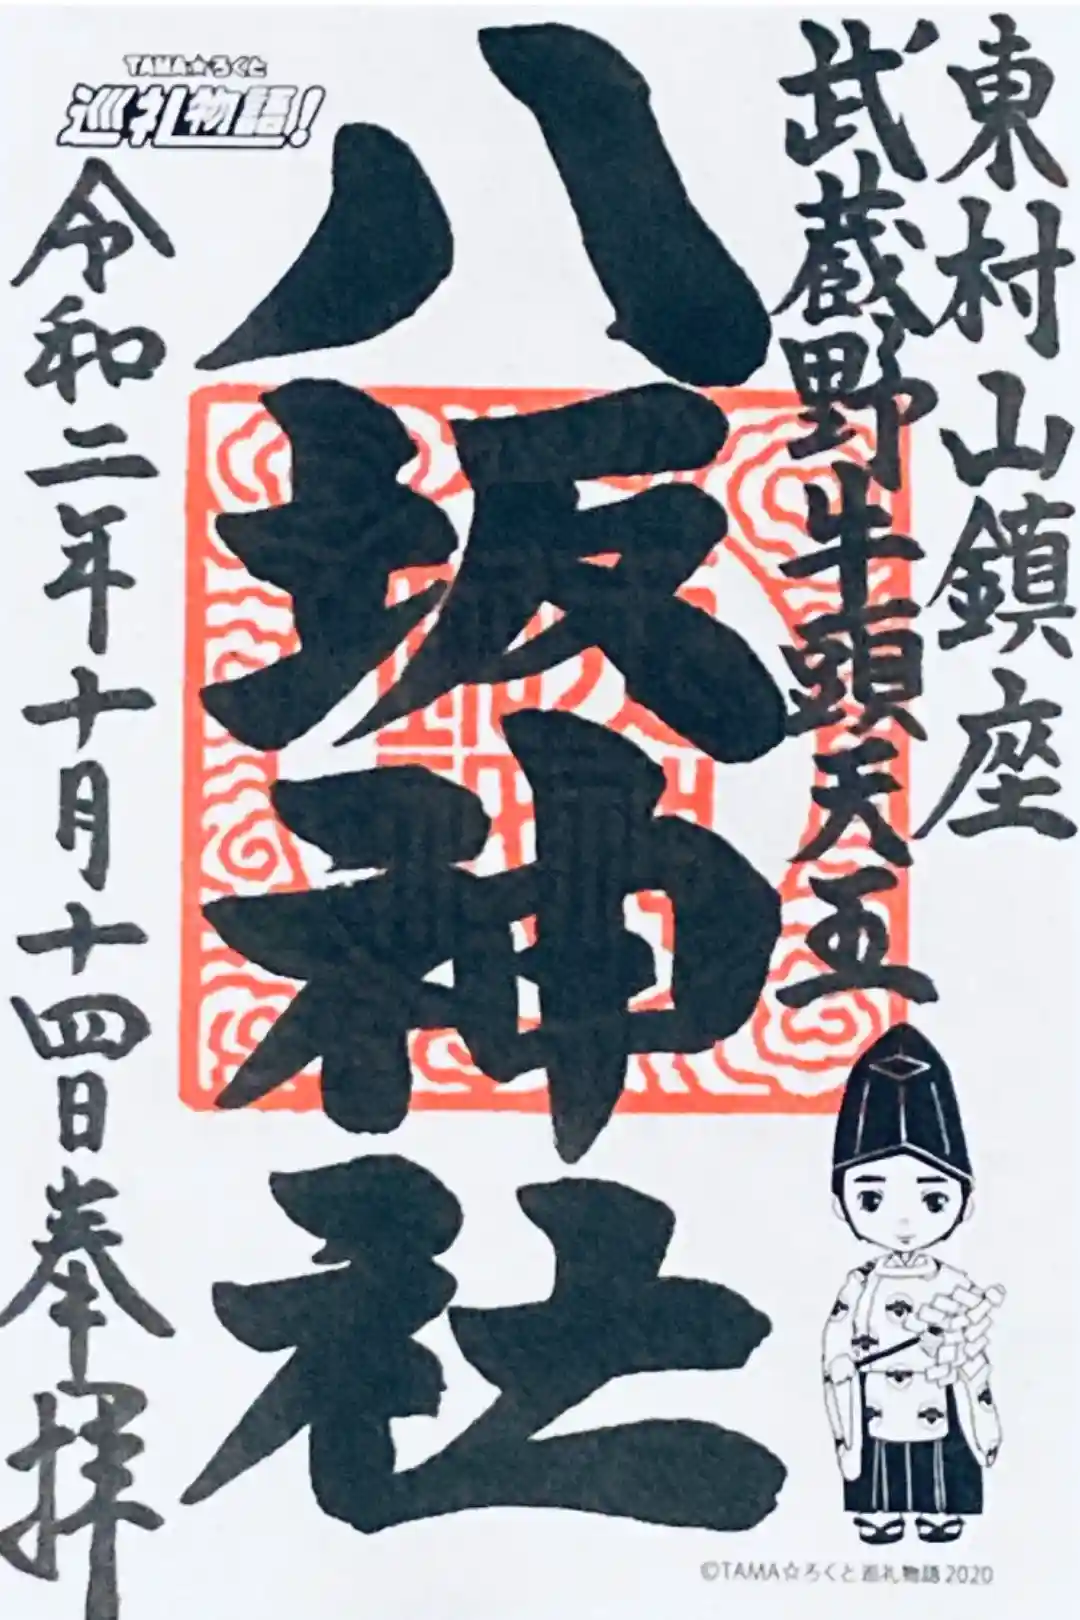 東村山鎮座
武蔵野牛頭天王
八坂神社
TAMA☆ろくと
巡礼物語!
令和二年十月十四日奉拝
©TAMA☆ろくと巡礼物語2020